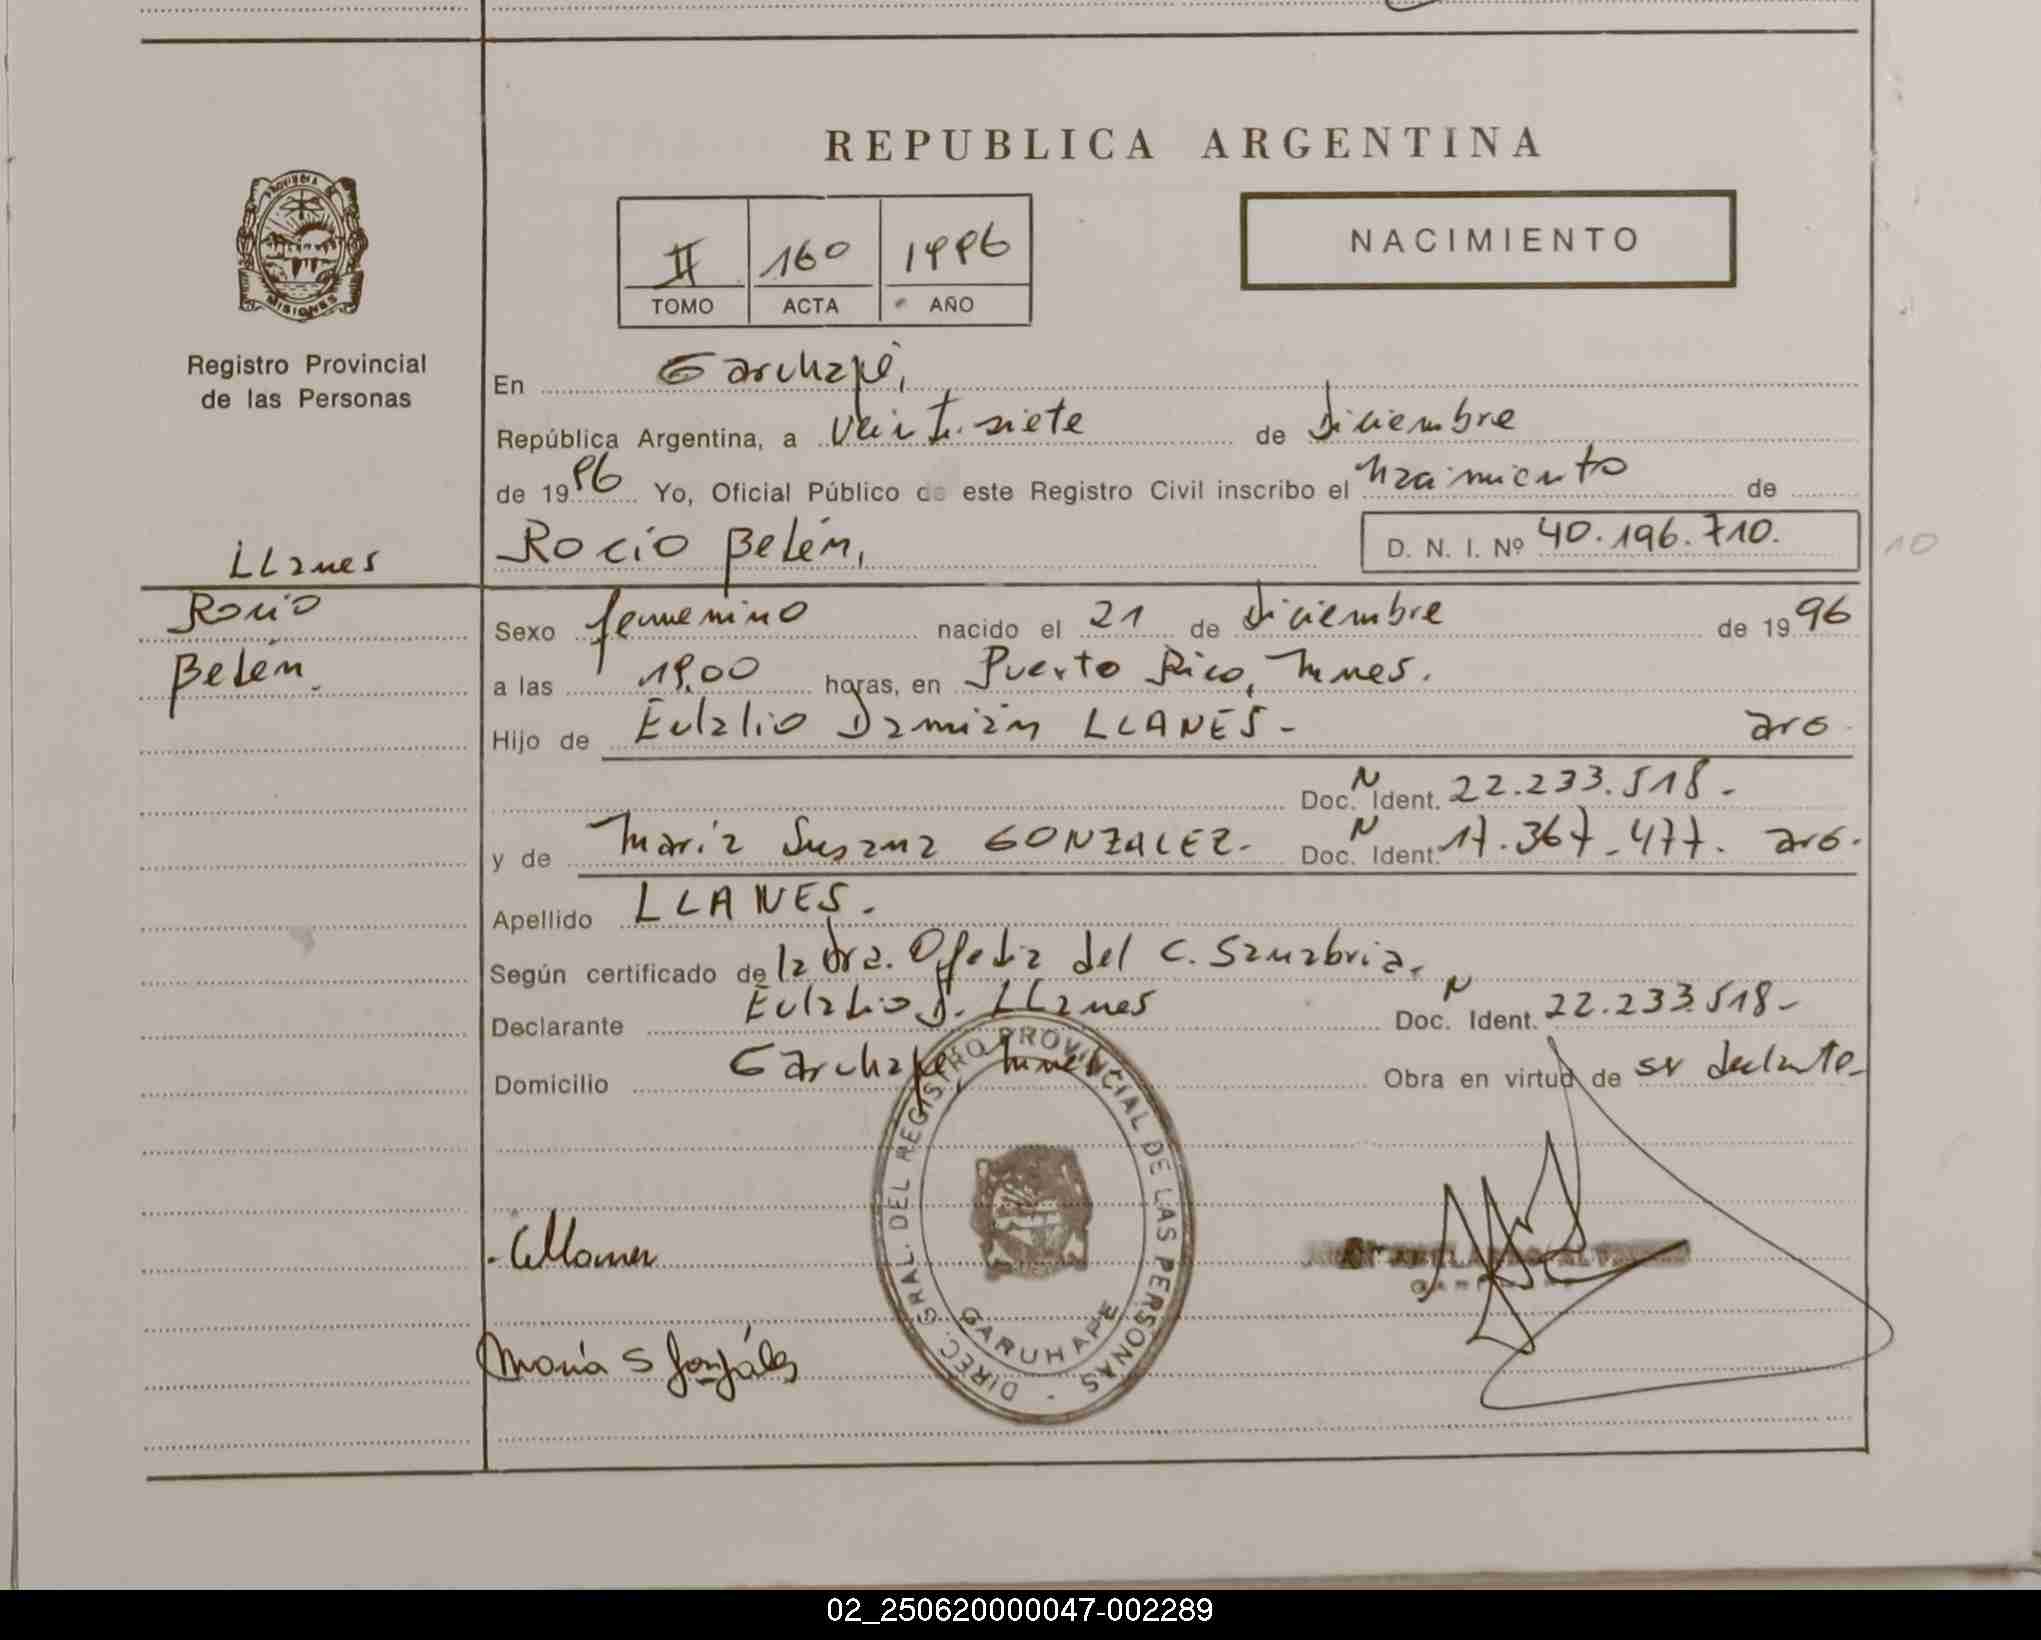 REPUBLICA ARGENTINA
PROVINCIA DE
MISIONES
Registro Provincial
de las Personas
II 160 1996
TOMO ACTA AÑO
NACIMIENTO
En Garuhapé,
República Argentina, a veintisiete de diciembre
de 1996 Yo, Oficial Público de este Registro Civil inscribo el nacimiento de
Rocío Belén, D. N. I. Nº 40.196.710.
10
LLanes
Rocío
Belén.
Sexo femenino nacido el 21 de diciembre de 1996
a las 19,00 horas, en Puerto Rico, Mnes.
Hijo de Eulalio Damián LLANES- aro.
Doc. N Ident. 22.233.518-
y de María Susana GONZALEZ. Doc. N Ident. 17.367.477. aro.
Apellido LLANES.
Según certificado de la dra. Ofelia del C. Sanabria.
Declarante Eulalio D. LLanes Doc. N Ident. 22.233.518-
Domicilio Garuhapé, Mnes Obra en virtud de su
María S González
DIREC. GRAL. DEL REGISTRO PROVINCIAL DE LAS PERSONAS -
GARUHAPE
02_250620000047-002289